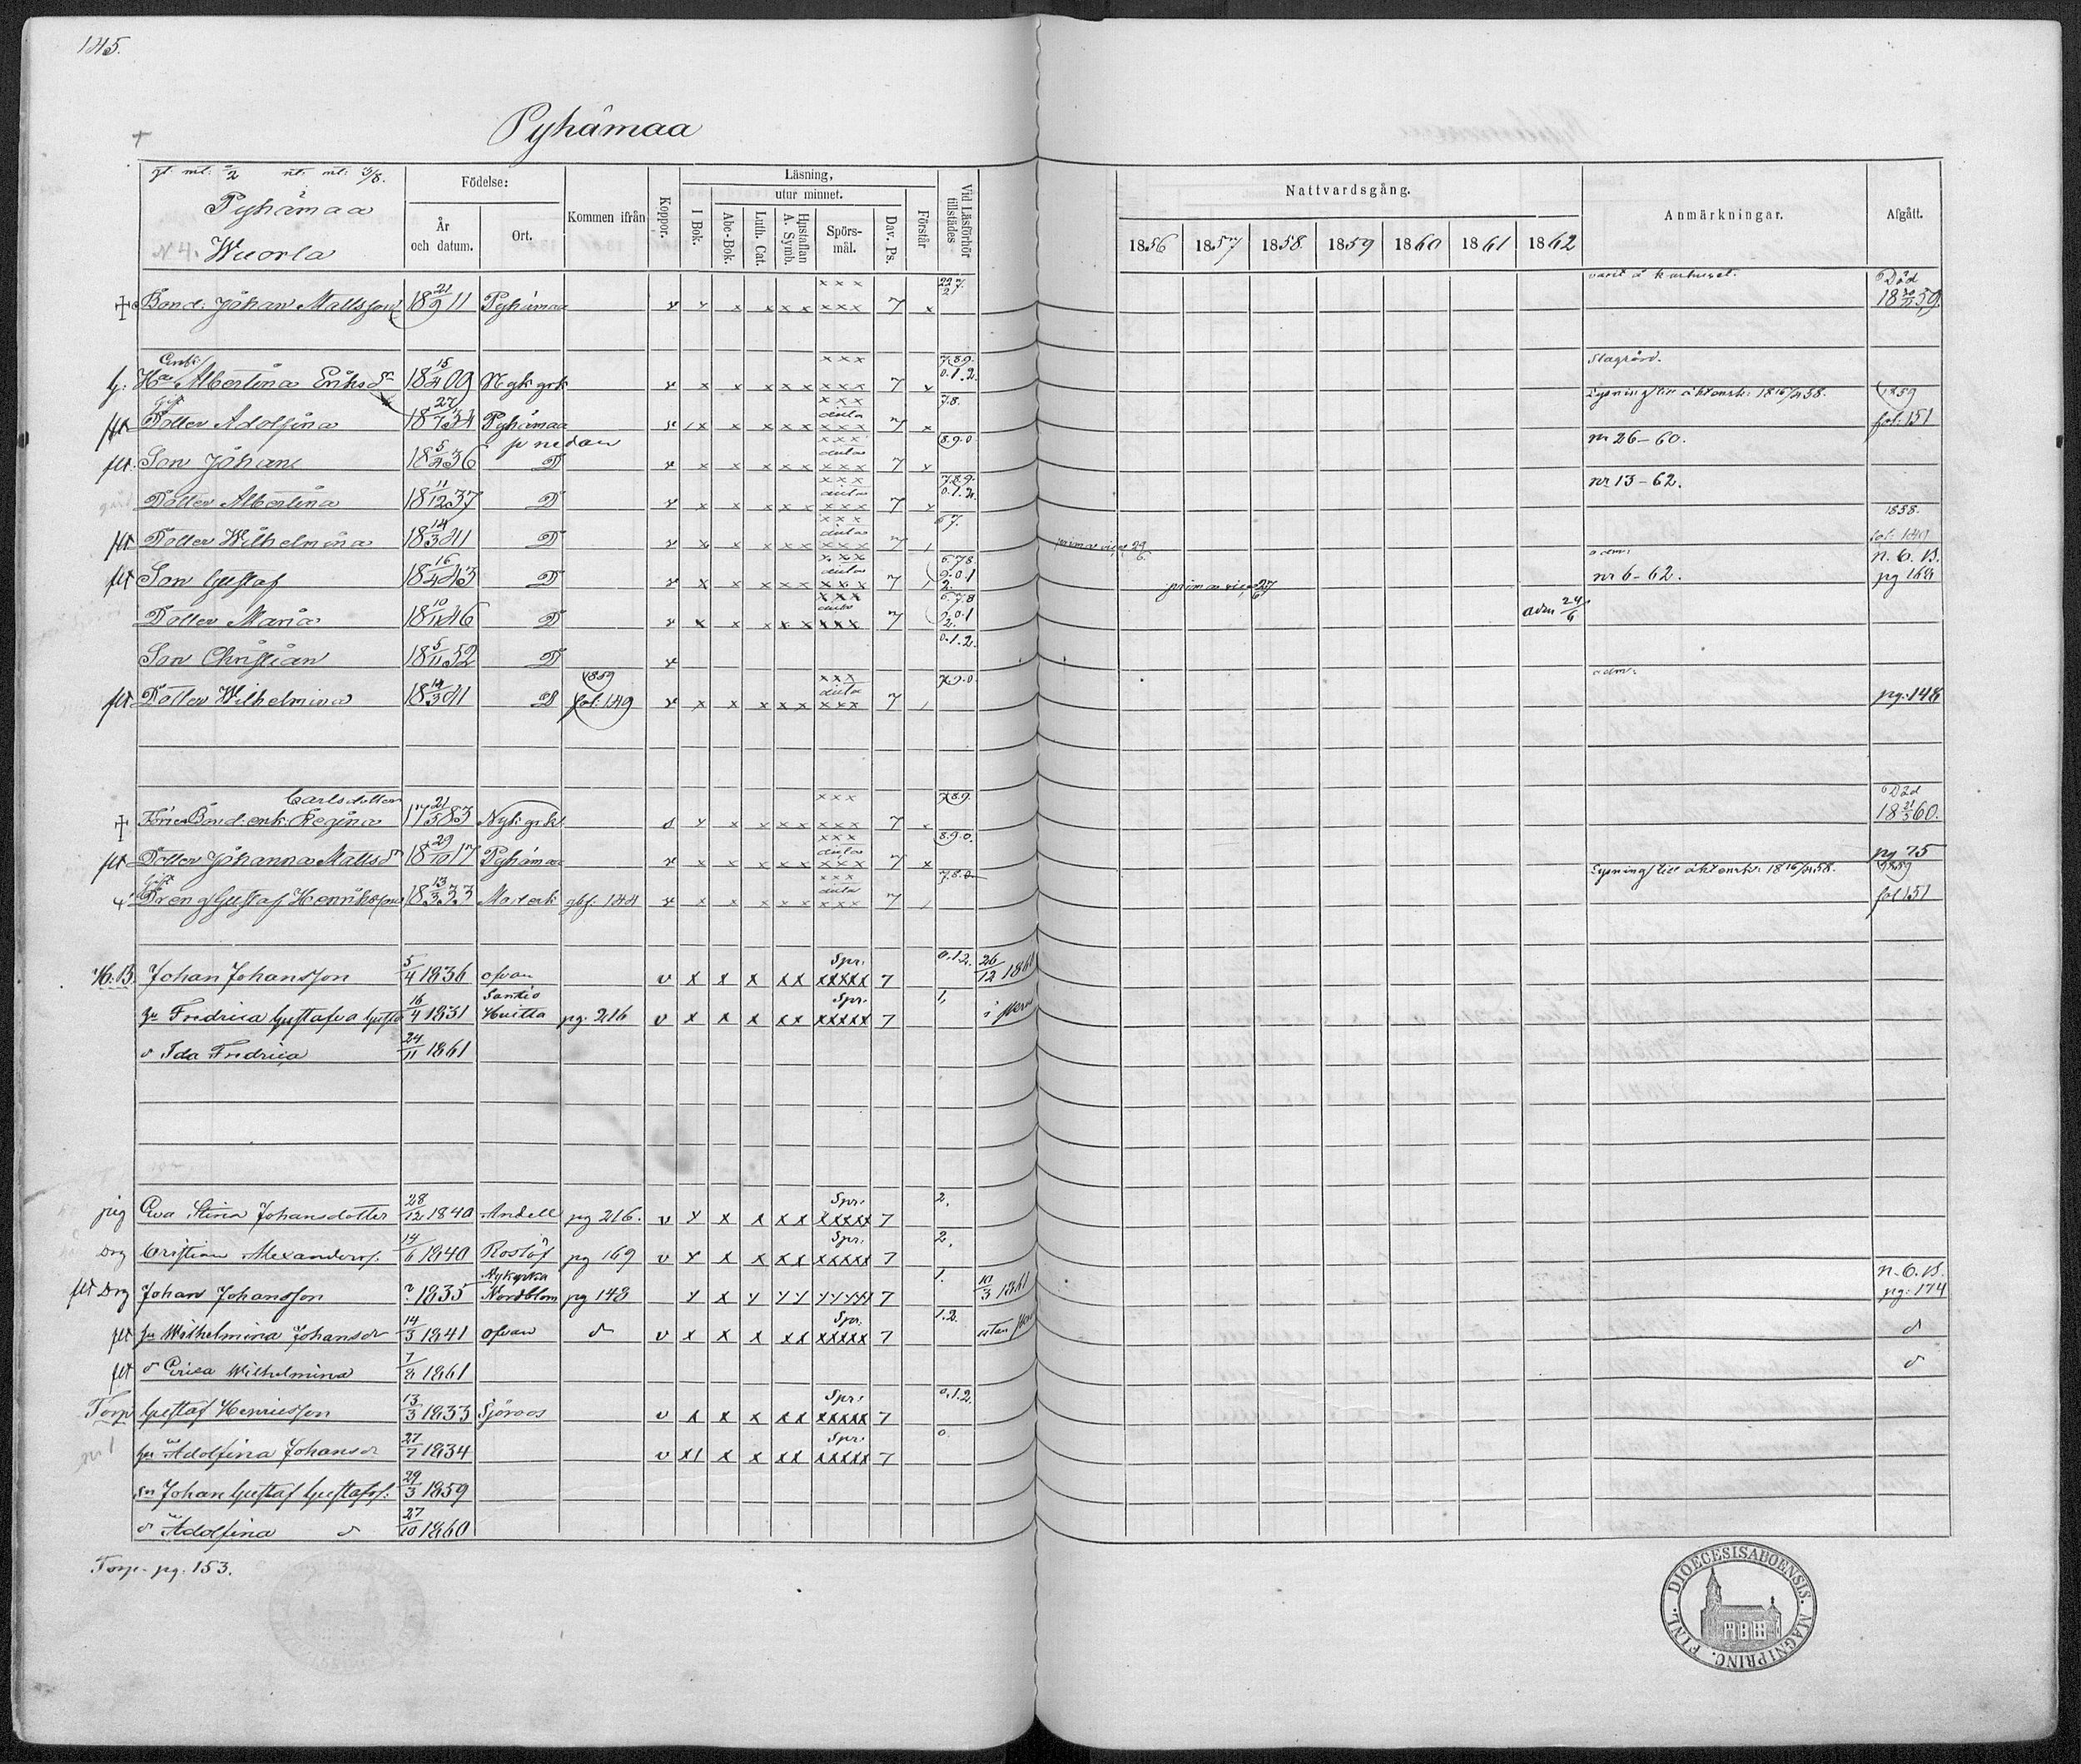 145.
Pyhämaa
gl. ml. 2 nt. ml. 3/8.
Pyhämaa
N 4. Wuorla
Födelse:
År och datum.
Ort.
Kommen ifrån
Koppor.
Läsning,
I Bok.
utur minnet.
Abc-Bok.
Luth. Cat.
Hustaflan A. Symb.
Spörs-mål.
Dav. Ps.
Förstår
Vid Läsförhör tillstädes
Nattvardsgång.
1856 1857 1858 1859 1860 1861 1862
Anmärkningar.
Afgått.
Bond. Johan Mattsson 18 21/9 11 Pyhämaa x x x x x x x x x 7 x Död 18 59
Enk. H:a Albertina Eriksdr 18 15/4 09 Nyk yrk x x x x x x x x x 7 x 7.8.9. 0.1.2. Stagård.
gift Dotter Adolfina 18 27/7 34 Pyhämaa x x x x x x x x x 7 x 7.8. Lysning till äktensk: 18 16/4 58. 1859 fol: 151
p nedan
flt Son Johan 18 5/4 36 D x x x x x x x x x 7 x 8.9.0 nr 26-60.
Dotter Albertina 18 11/12 37 D x x x x x x x x x 7 x 7.8.9. 0.1.2. nr 13-62.
flt Dotter Wilhelmina 18 14/3 41 D x x x x x x x x x 7 6 7. prima vice 29/6 1858. fol: 149
flt Son Gustaf 18 16/4 43 D x x x x x x x x x 7 6.7.8. 9.0.1 2. prima vice 27/6 adm: nr 6-62. n. 6. B. pg 168
Dotter Maria 18 10/11 46 D x x x x x x x x x 7 6.7.8 9.0.1 2. adm 24/6
Son Christian 18 5/11 52 D x 0.1.2.
flt Dotter Wilhelmina 18 14/3 41 D 1859 fol: 149 x x x x x x x x x 7 7.9.0 adm: pg. 148
Carlsdotter
Förre Bond. enk. Regina 17 21/5 83 Nyk yrk x x x x x x x x 7 7.8.9. Död 18 21/3 60.
flt Dotter Johanna Mattsdr 18 29/10 17 Pyhämaa x x x x x x x x x 7 x 8.9.0. pg 75
gift Dreng Gustaf Henriksson 18 13/3 33 gbf. 144 x x x x x x x x x 7 7.8.0 Lysning till äktensk: 18 16/4 58. 1859 fol 151
Spr.
Johan Johansson 5/4 1836 ofvan v x x x x x x x x x x 7 0.1.2. 26/12 1861
Spr.
hu Fredrica Gustafva Gustafsd 16/4 1831 Santio Huitta pg. 216 v x x x x x x x x x x 7 1,
d Ida Fredrica 24/11 1861
Spr.
pig Eva Stina Johansdotter 28/12 1840 Andell pg 216. v x x x x x x x x x x 7 2.
Spr.
Drg Cristian Alexanders. 14/6 1840 Roslöf pg 169 v x x x x x x x x x x 7 2.
flt Drg Johan Johansson ? 1835 Nykyrka Nordblom pg 148 x x x x x x x x x x 7 1. 10/3 1861 n. 6. B. pg. 174
Spr.
flt hu Wilhelmina Johansdr 14/3 1841 ofvan d v x x x x x x x x x x 7 1.2. d
flt d Erica Wilhelmina 7/8 1861 d
Spr.
Torp Gustaf Henricsson 13/3 1833 Sjöroos v x x x x x x x x x x 7 0.1.2.
Spr.
hu Adolfina Johansdr 27/7 1834 v x x x x x x x x x x 7 0.
sn Johan Gustaf Gustafss. 29/3 1859
d Adolfina d 27/10 1860
Torp. pg. 153.
DIOECESIS ABOENSIS. MAGNI PRINC. FINL.